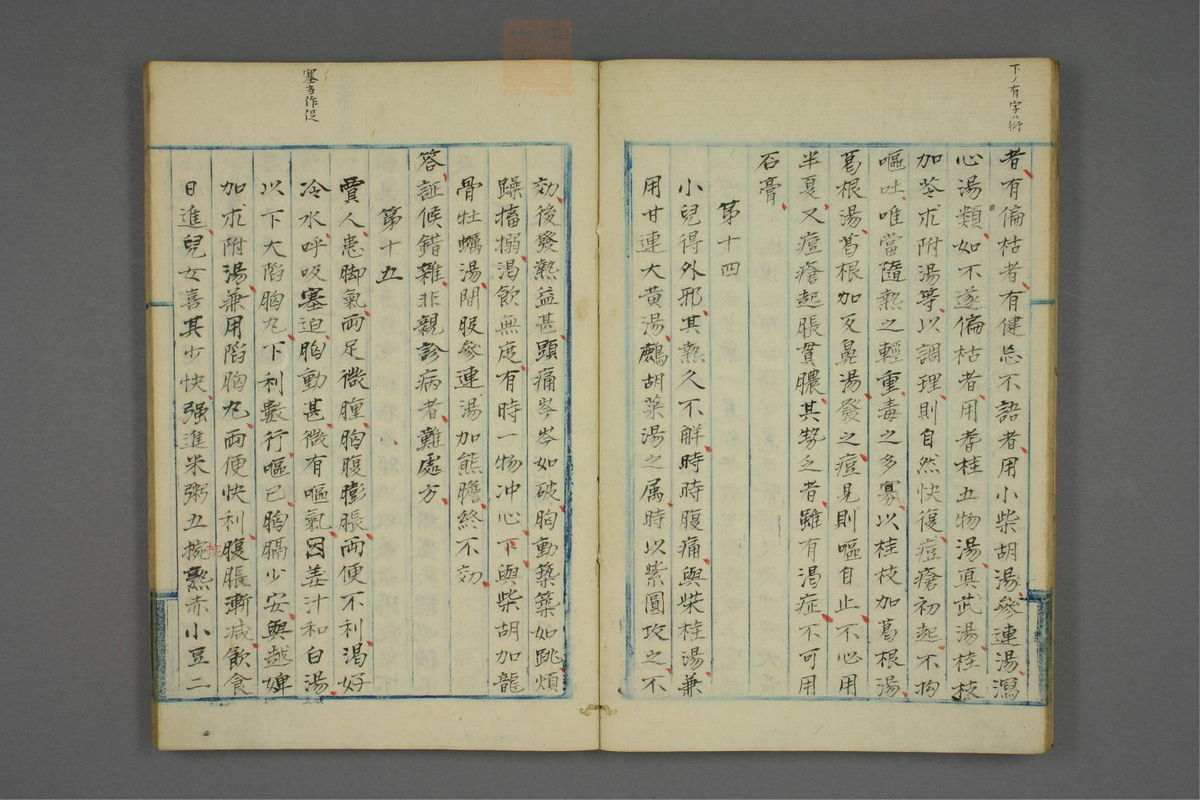 下ノ有字ハ衍
者有偏枯者有健忘不語者用小柴胡湯參連湯瀉
心湯類如不遂偏枯者用耆桂五物湯真武湯桂枝
加苓朮附湯等以調理則自然快復痘瘡初起不拘
嘔吐唯當隨熱之輕重毒之多寡以桂枝加葛根湯
葛根湯葛根加反鼻湯發之痘見則嘔自止不心用
半夏又痘瘡起脹貫膿其勢乏者雖有渴症不可用
石膏
第十四
小兒得外邪其熱久不觧時時腹痛與柴桂湯兼
用甘連大黄湯鷓胡菜湯之属時以紫圓攻之不
塞当作促
効後發熱益甚頭痛岑岑如破胸動築築如跳煩
躁搐搦渴飲無度有時一物冲心下與柴胡加龍
骨牡蠣湯間服參連湯加熊膽終不効
答証候錯雜非親診病者難處方
第十五
賈人患脚氣両足微腫胸腹膨脹両便不利渴好
冷水呼吸塞迫胸動甚微有嘔氣因姜汁和白湯
以下大陷胸丸下利數行嘔已胸膈少安與越婢
加朮附湯兼用陷胸丸両便快利腹脹漸減飲食
日進兒女喜其少快强進米粥五捥熟赤小豆二